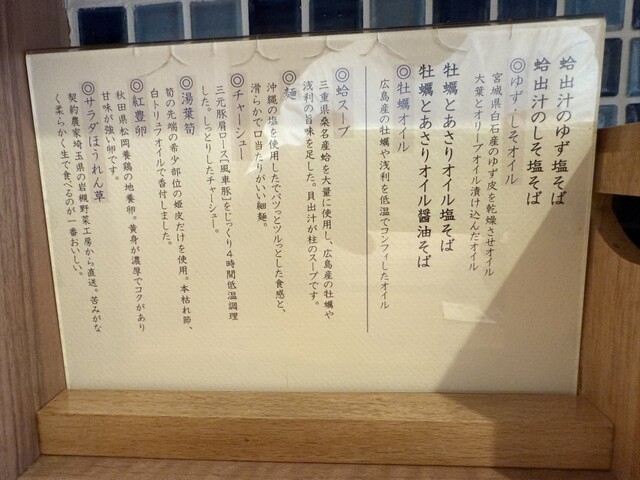 蛤出汁のゆず塩そば
蛤出汁のしそ塩そば
◎ゆず・しそオイル
宮城県白石産のゆず皮を乾燥させオイル
大葉とオリーブオイル漬け込んだオイル
牡蠣とあさりオイル塩そば
牡蠣とあさりオイル醤油そば
◎牡蠣オイル
広島産の牡蠣や浅利を低温でコンフィしたオイル
◎蛤スープ
三重県桑名産蛤を大量に使用し、広島産の牡蠣や
浅利の旨味を足した。貝出汁が柱のスープです。
◎麺
沖縄の塩を使用したでパツっとツルっとした食感と、
滑らかで口当たりがいい細麺。
◎チャーシュー
三元豚肩ロース「風車豚」をじっくり4時間低温調理
した。しっとりしたチャーシュー。
◎湯葉筍
筍の先端の希少部位の姫皮だけを使用。本枯れ節、
白トリュフオイルで香付しました。
◎紅豊卵
秋田県松岡養鶏の地養卵。黄身が濃厚でコクがあり
甘味が強い卵です。
◎サラダほうれん草
契約農家埼玉県の岩槻野菜工房から直送。苦みがな
く柔らかく生で食べるのが一番おいしい。